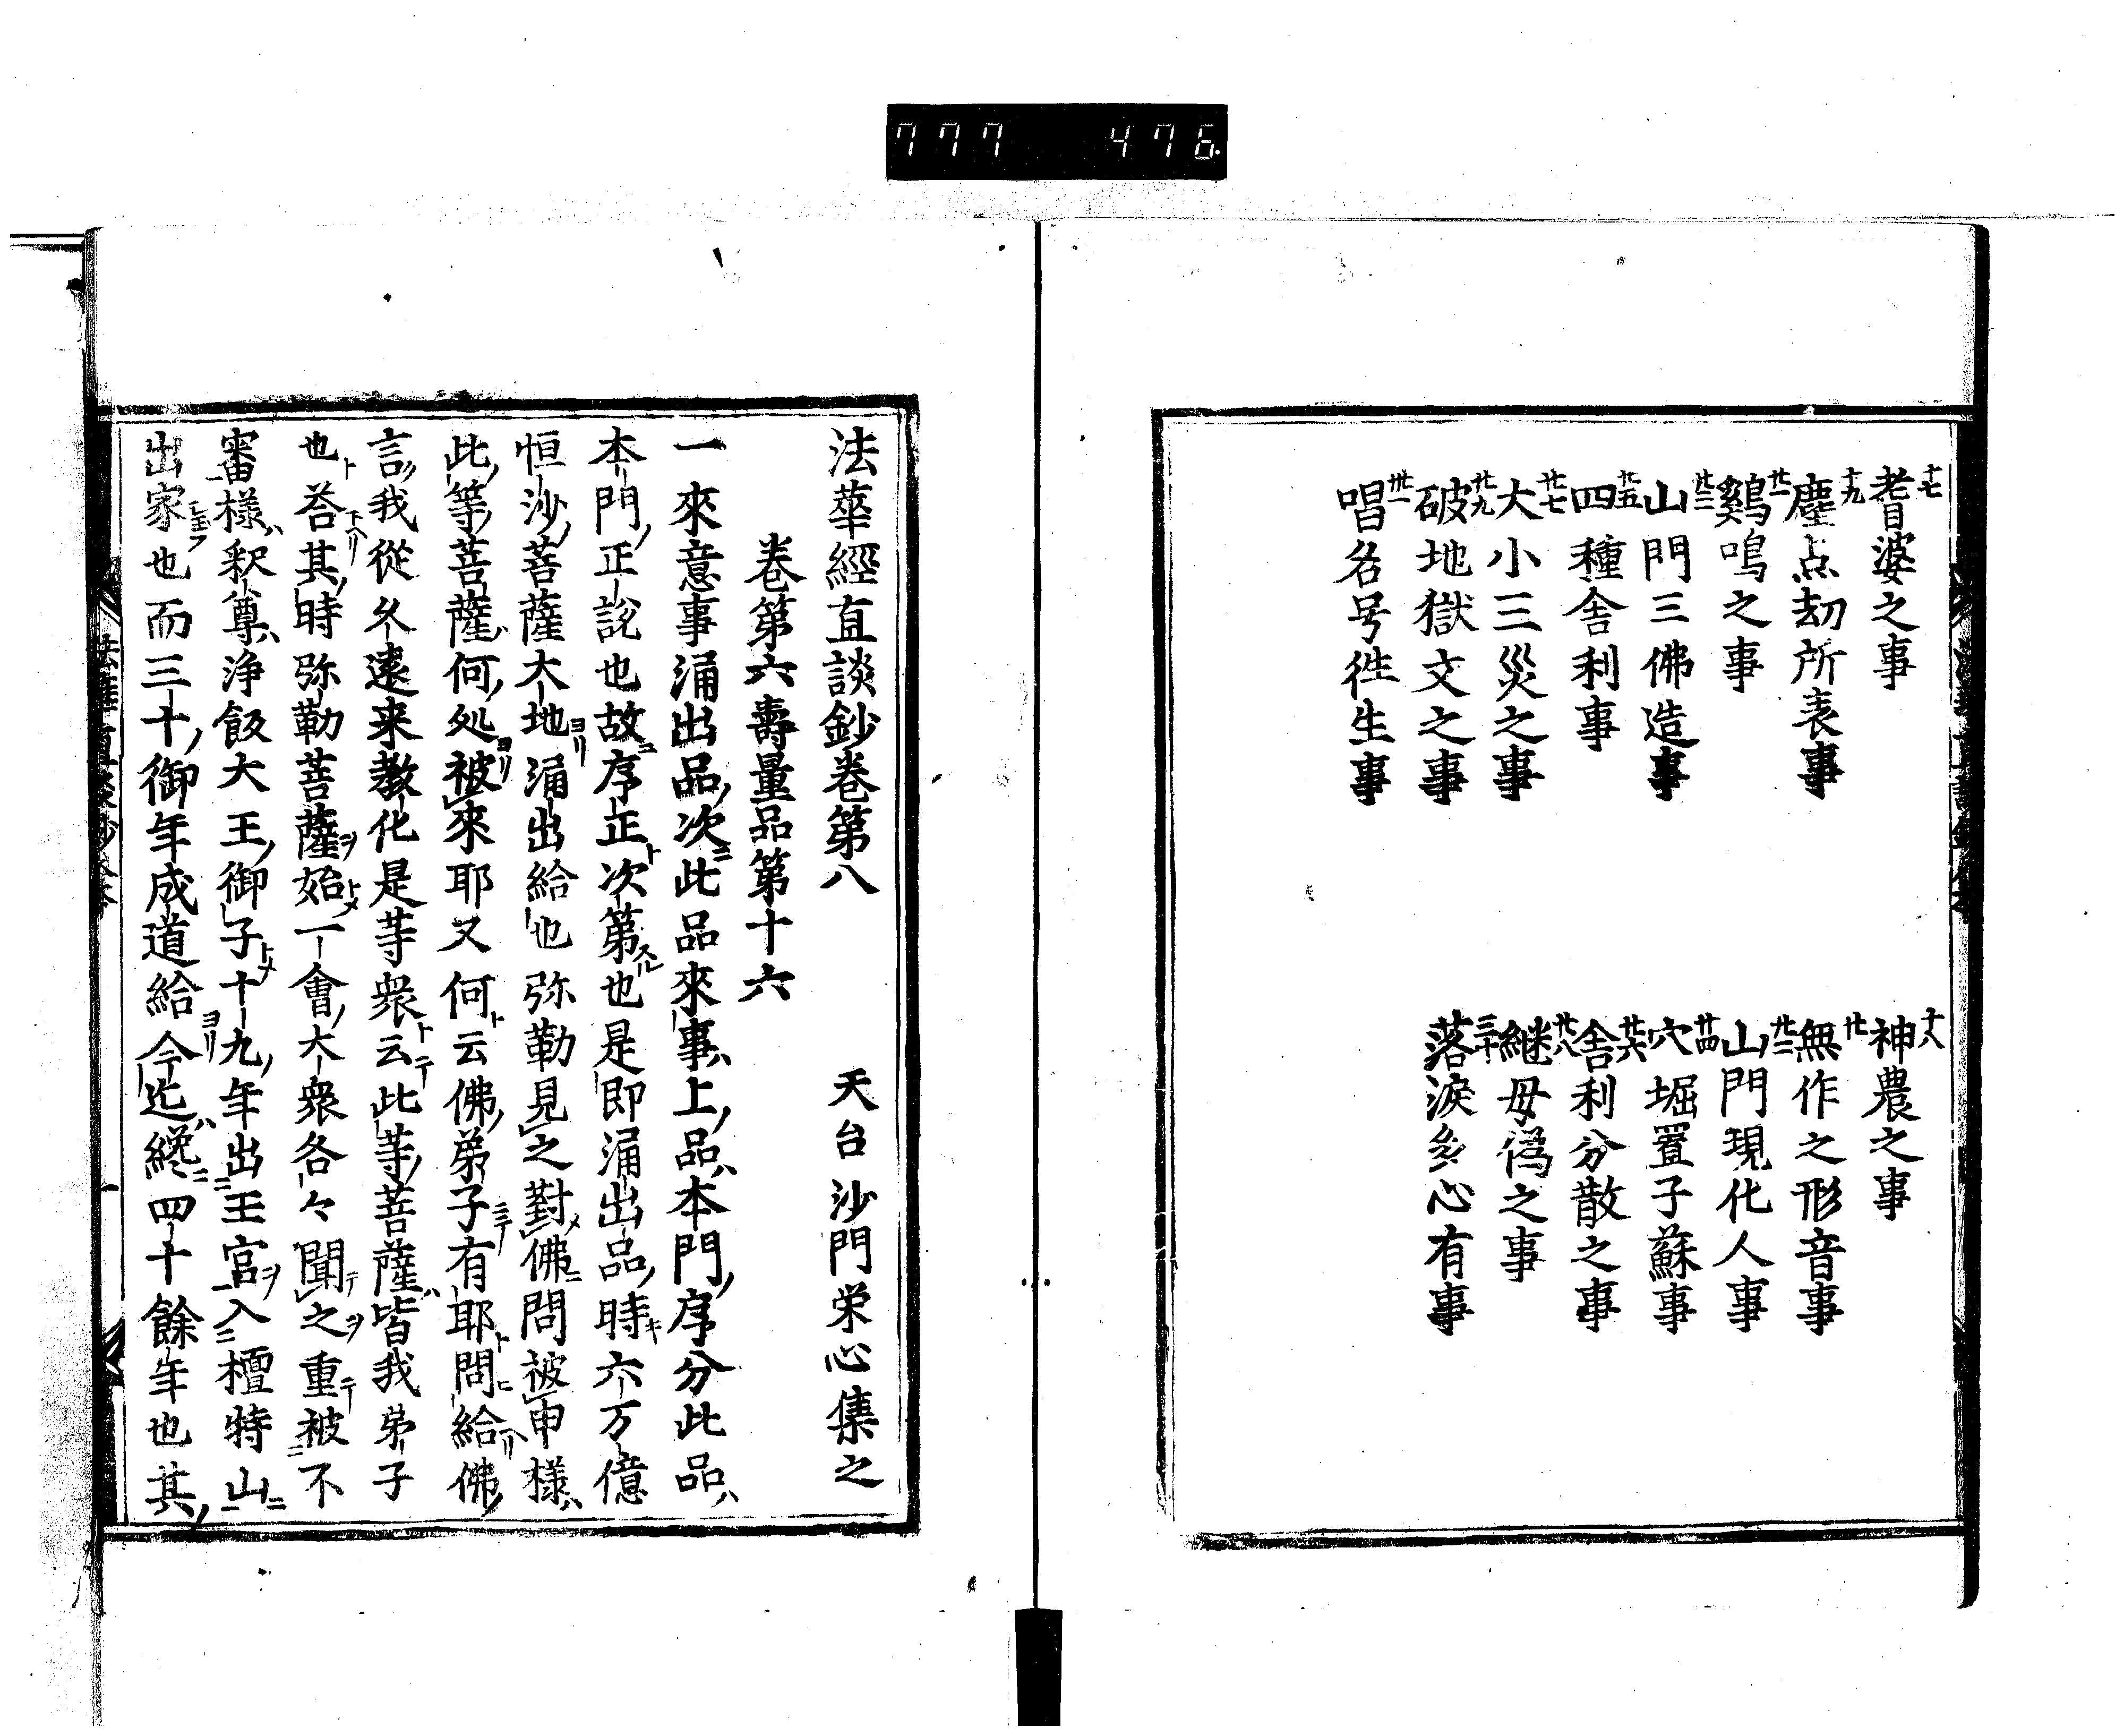 777 476
十七 耆婆之事
十八 神農之事
十九 塵点劫所表事
廿 無作之形音事
廿一 鷄鳴之事
廿二 山門現化人事
廿三 山門三佛造事
廿四 穴堀置子蘇事
廿五 四種舎利事
廿六 舎利分散之事
廿七 大小三災之事
廿八 継母偽之事
廿九 破地獄文之事
三十 落涙多心有事
卅一 唱名号徃生事
法華經直談鈔巻第八 天台沙門栄心集之
巻第六壽量品第十六
一來意事涌出品次此品來事上品本門序分此品
本門正説也故序正次第也是即涌出品時六万億
恒沙菩薩大地涌出給也弥勒見之對佛問被申様
此等菩薩何処被來耶又何云佛弟子有耶問給佛
言我從久遠来教化是等衆云此等菩薩皆我弟子
也荅其時弥勒菩薩始一會大衆各々聞之重被不
審様釈尊浄飯大王御子十九年出王宮入檀特山
出家也而三十御年成道給今迄纔四十餘年也其